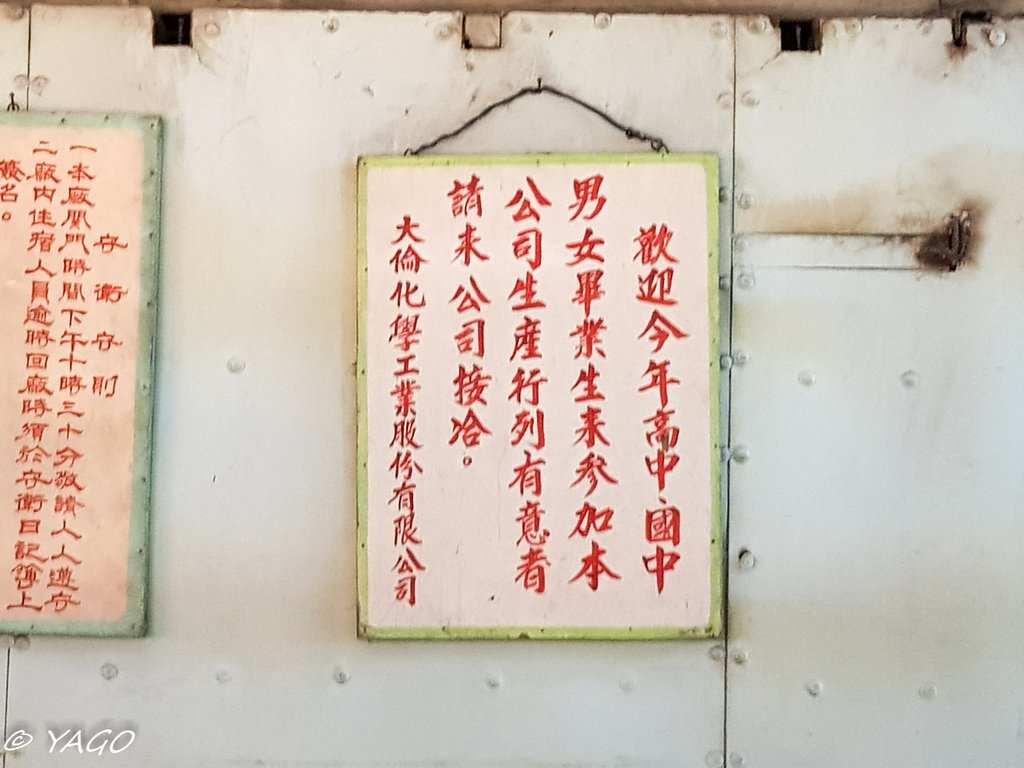 歡迎今年高中、國中
男女畢業生來參加本
公司生產行列有意者
請来公司接洽。
大倫化學工業股份有限公司
守衛守則
一本廠関門時間下午十時三十分敬請人人遵守
二廠内住宿人員逾時回廠時須於守衛日記簿上
簽名。
© YAGO